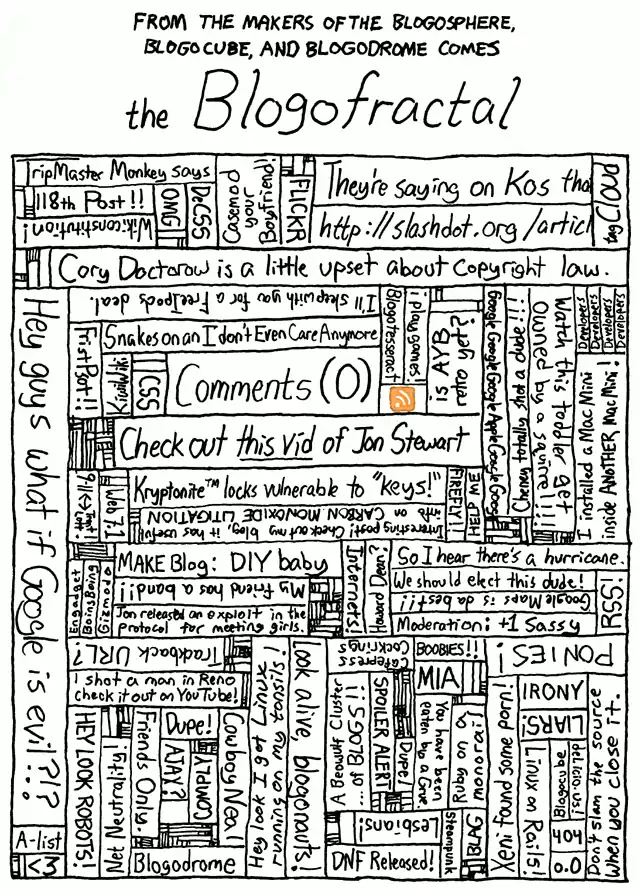 FROM THE MAKERS OF THE BLOGOSPHERE,
BLOGOCUBE, AND BLOGODROME COMES
the Blogofractal
TripMaster Monkey says
118th Post!!
Wikiconstitution!
OMG
DeCSS
Casemod
your
Boyfriend!
FLICKR
They're saying on Kos tha
http://slashdot.org/articl
tag Cloud
Cory Doctorow is a little upset about copyright law.
Hey guys what if Google is evil?!?
A-list
<3
I'll sleep with you for a FreeIpods deal.
Snakes on an I don't Even Care Anymore
FirstPost!!
KiwiWiki
CSS
Comments (0)
Blogotesseract
i play games!
is AYB
retro yet?
Google Google Google Apple Google Google
Cheney totally shot a dude!!!
Watch this toddler get
Owned by a squirrel!!!
Developers
Developers
Developers
Developers
I installed a Mac Mini
inside ANOTHER Mac Mini!
Check out this vid of Jon Stewart
Web 7.1
Kryptonite™ locks vulnerable to "keys!"
Interesting post! Check out my blog, it has useful
info on CARBON MONOXIDE LITIGATION
FIREFLY!!
HELP ME
Engadget
BoingBoing
Gizmodo
MAKE Blog: DIY baby
My friend has a band!!
Jon released an exploit in the
protocol for meeting girls.
Internets!
Howard Dean?
So I hear there's a hurricane.
We should elect this dude!
Google Maps is da best!!
Moderation: +1 Sassy
RSS!
Trackback URL?
I shot a man in Reno
check it out on YouTube!
HEY LOOK ROBOTS!
Net Neutrality!
Friends Only.
Dupe!
AJAX?
COMPLY
Cowboy Neal
Blogodrome
Hey look I got Linux
running on my tonsils!
Look alive, blogonauts!
Cafepress
Cockrings
BOOBIES!!
MIA
A Beowulf Cluster
... of BLOGS!!
SPOILER ALERT!
Dupe!
You have been
eaten by a Grue
Ruby on a
monorail
Lesbians!
DNF Released!
Steampunk
BLAG
PONIES!
Xeni found some porn!
IRONY
LIARS!
Linux on Rails!
Blogocube
del.icio.us!
404
0.0
Don't slam the source
when you close it.